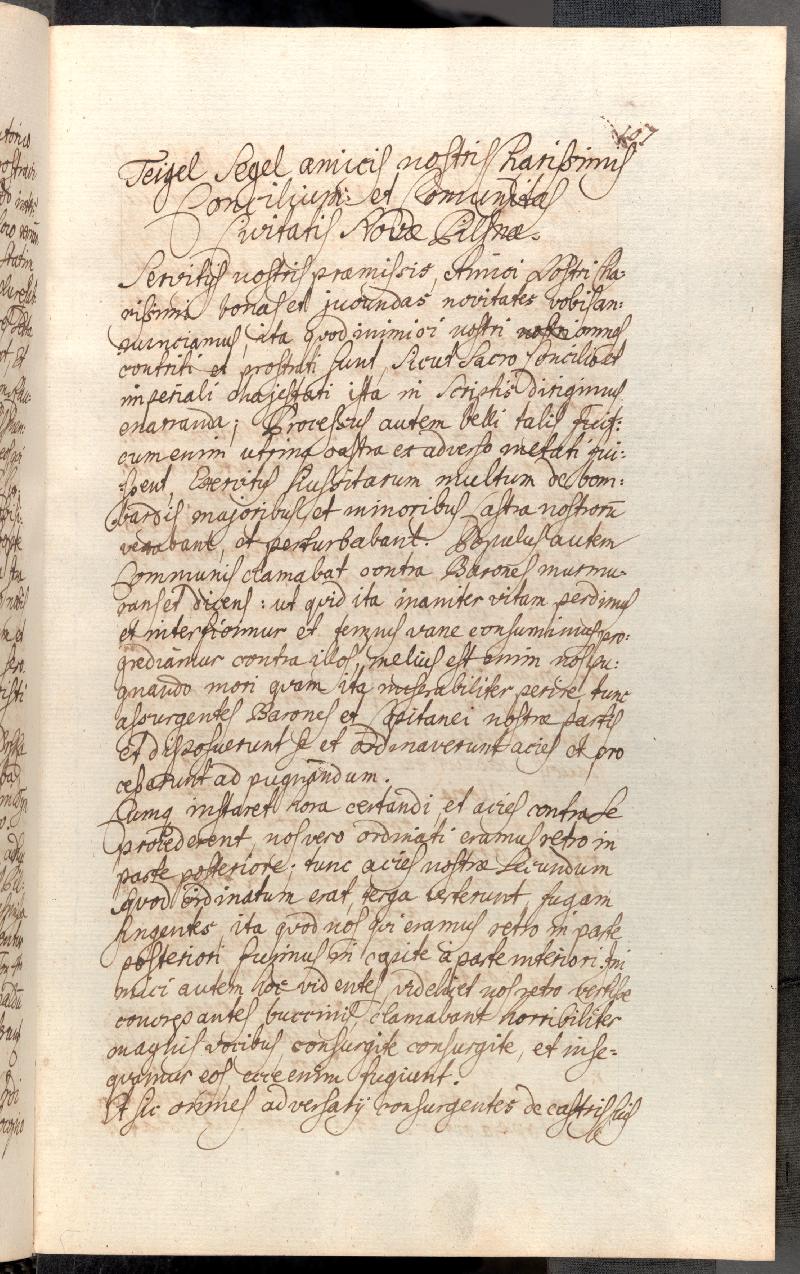 407
Teigel Segel amicis nostris Charissimis
Concilium et Comunitas
Civitatis Novæ Pilsnæ.
Servitijs nostris præmissis, Amici Nostri Cha-
rissimi bonas et jucundas novitates vobis an:
nunciamus, ita quod inimici nostri omnes
contriti et prostrati sunt, sicut Sacro Concilio et
imperiali Majestati ista in scriptis dirigimus
enarranda; Processus autem belli talis fuit:
cum enim utrinq castra ex adverso metati fui-
ssent, Exercitus Hussitarum multum de bom:
bardis majoribus et minoribus Castra nostrorū
vexabant, et perturbabant. Populus autem
Communis clamabat contra Barones murmu-
rans et dicens: ut quid ita inaniter vitam perdimus
et interficimur et tempus vane consumimus, pro:
grediamur contra illos, melius est enim nos pu:
gnando mori quam ita miserabiliter perire, tunc
assurgentes Barones et Capitanei nostræ partis
et disposuerunt se et ordinaverunt acies et pro
cesserunt ad pugnandum.
Cumq instaret hora certandi, et acies contra se
procederent, nos vero ordinati eramus retro in
parte posteriore; tunc acies nostræ secundum
quod ordinatum erat, terga verterunt, fugam
fingentes, ita quod nos qui eramus retro in parte
posteriori fuimus in capite a parte interiori. Ini
mici autem hoc videntes, videlicet nos retro vertisse
concrepantes buccinis, clamabant horribiliter
magnis vocibus, consurgite consurgite, et inse-
quamur eos, ecce enim fugiunt.
Et sic omnes adversarij consurgentes de castris suis